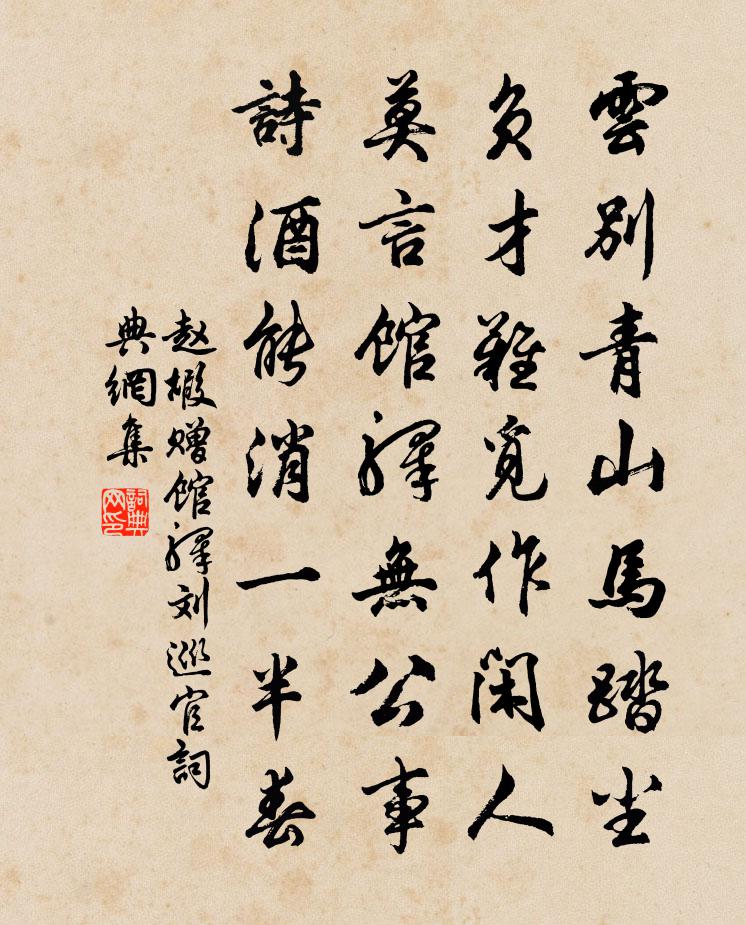 雲別青山馬踏尘
负才難覓作閑人
莫言館驛無公事
詩酒能消一半春
赵嘏赠館驛刘巡官詞
典網集
詞典网印